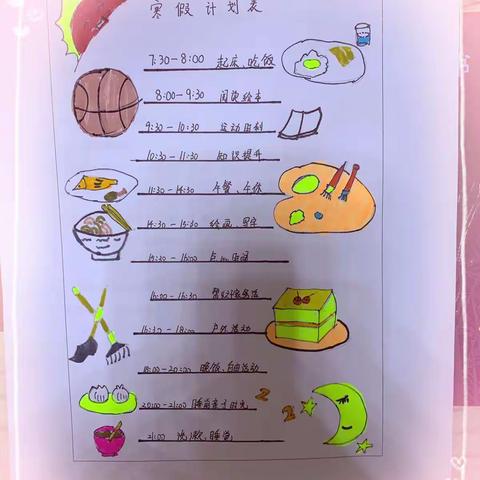 寒假计划表
7:30-8:00 起床、吃饭
8:00-9:30 阅读绘本
9:30-10:30 运动
10:30-11:30 知识提升
11:30-14:30 午餐、午休
14:30-15:30 绘画、写字
15:30-16:00 点心时间
16:00-16:30 帮做家务活
16:30-18:00 户外活动
18:00-20:00 晚饭、自由活动
20:00-21:00 睡前亲子时光
21:00 洗漱、睡觉
2
2